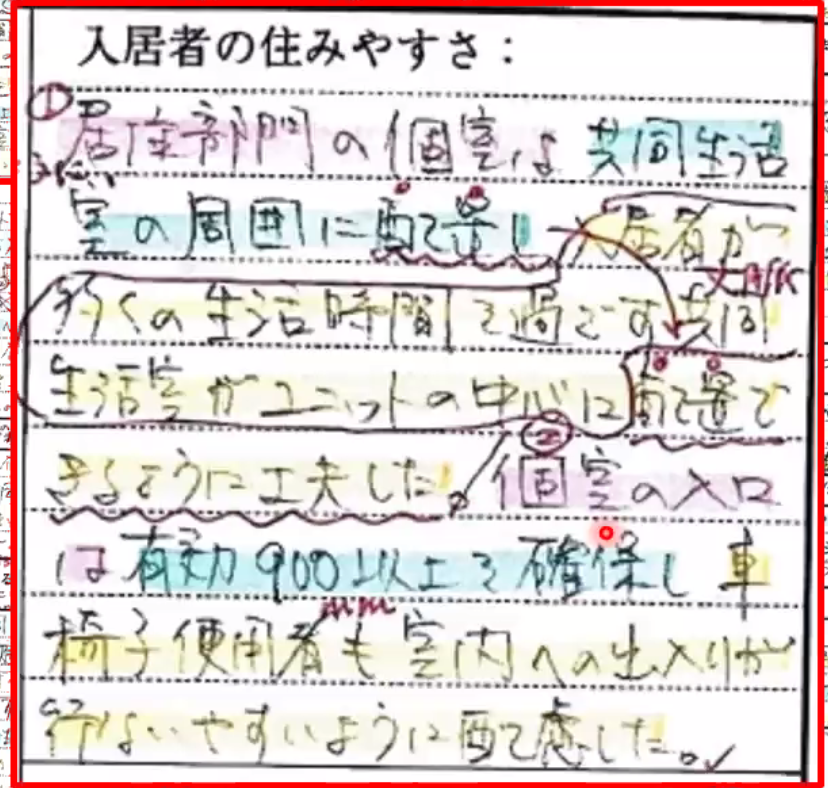 入居者の住みやすさ：
①
居住部門の個室は共同生活
室の周囲に配置し 入居者が
多くの生活時間を過ごす共同
生活室がユニットの中心に配置で
きるように工夫した。②個室の入口
は有効900以上を確保し車
mm
椅子使用者も室内への出入りが
行ないやすいように配慮した。